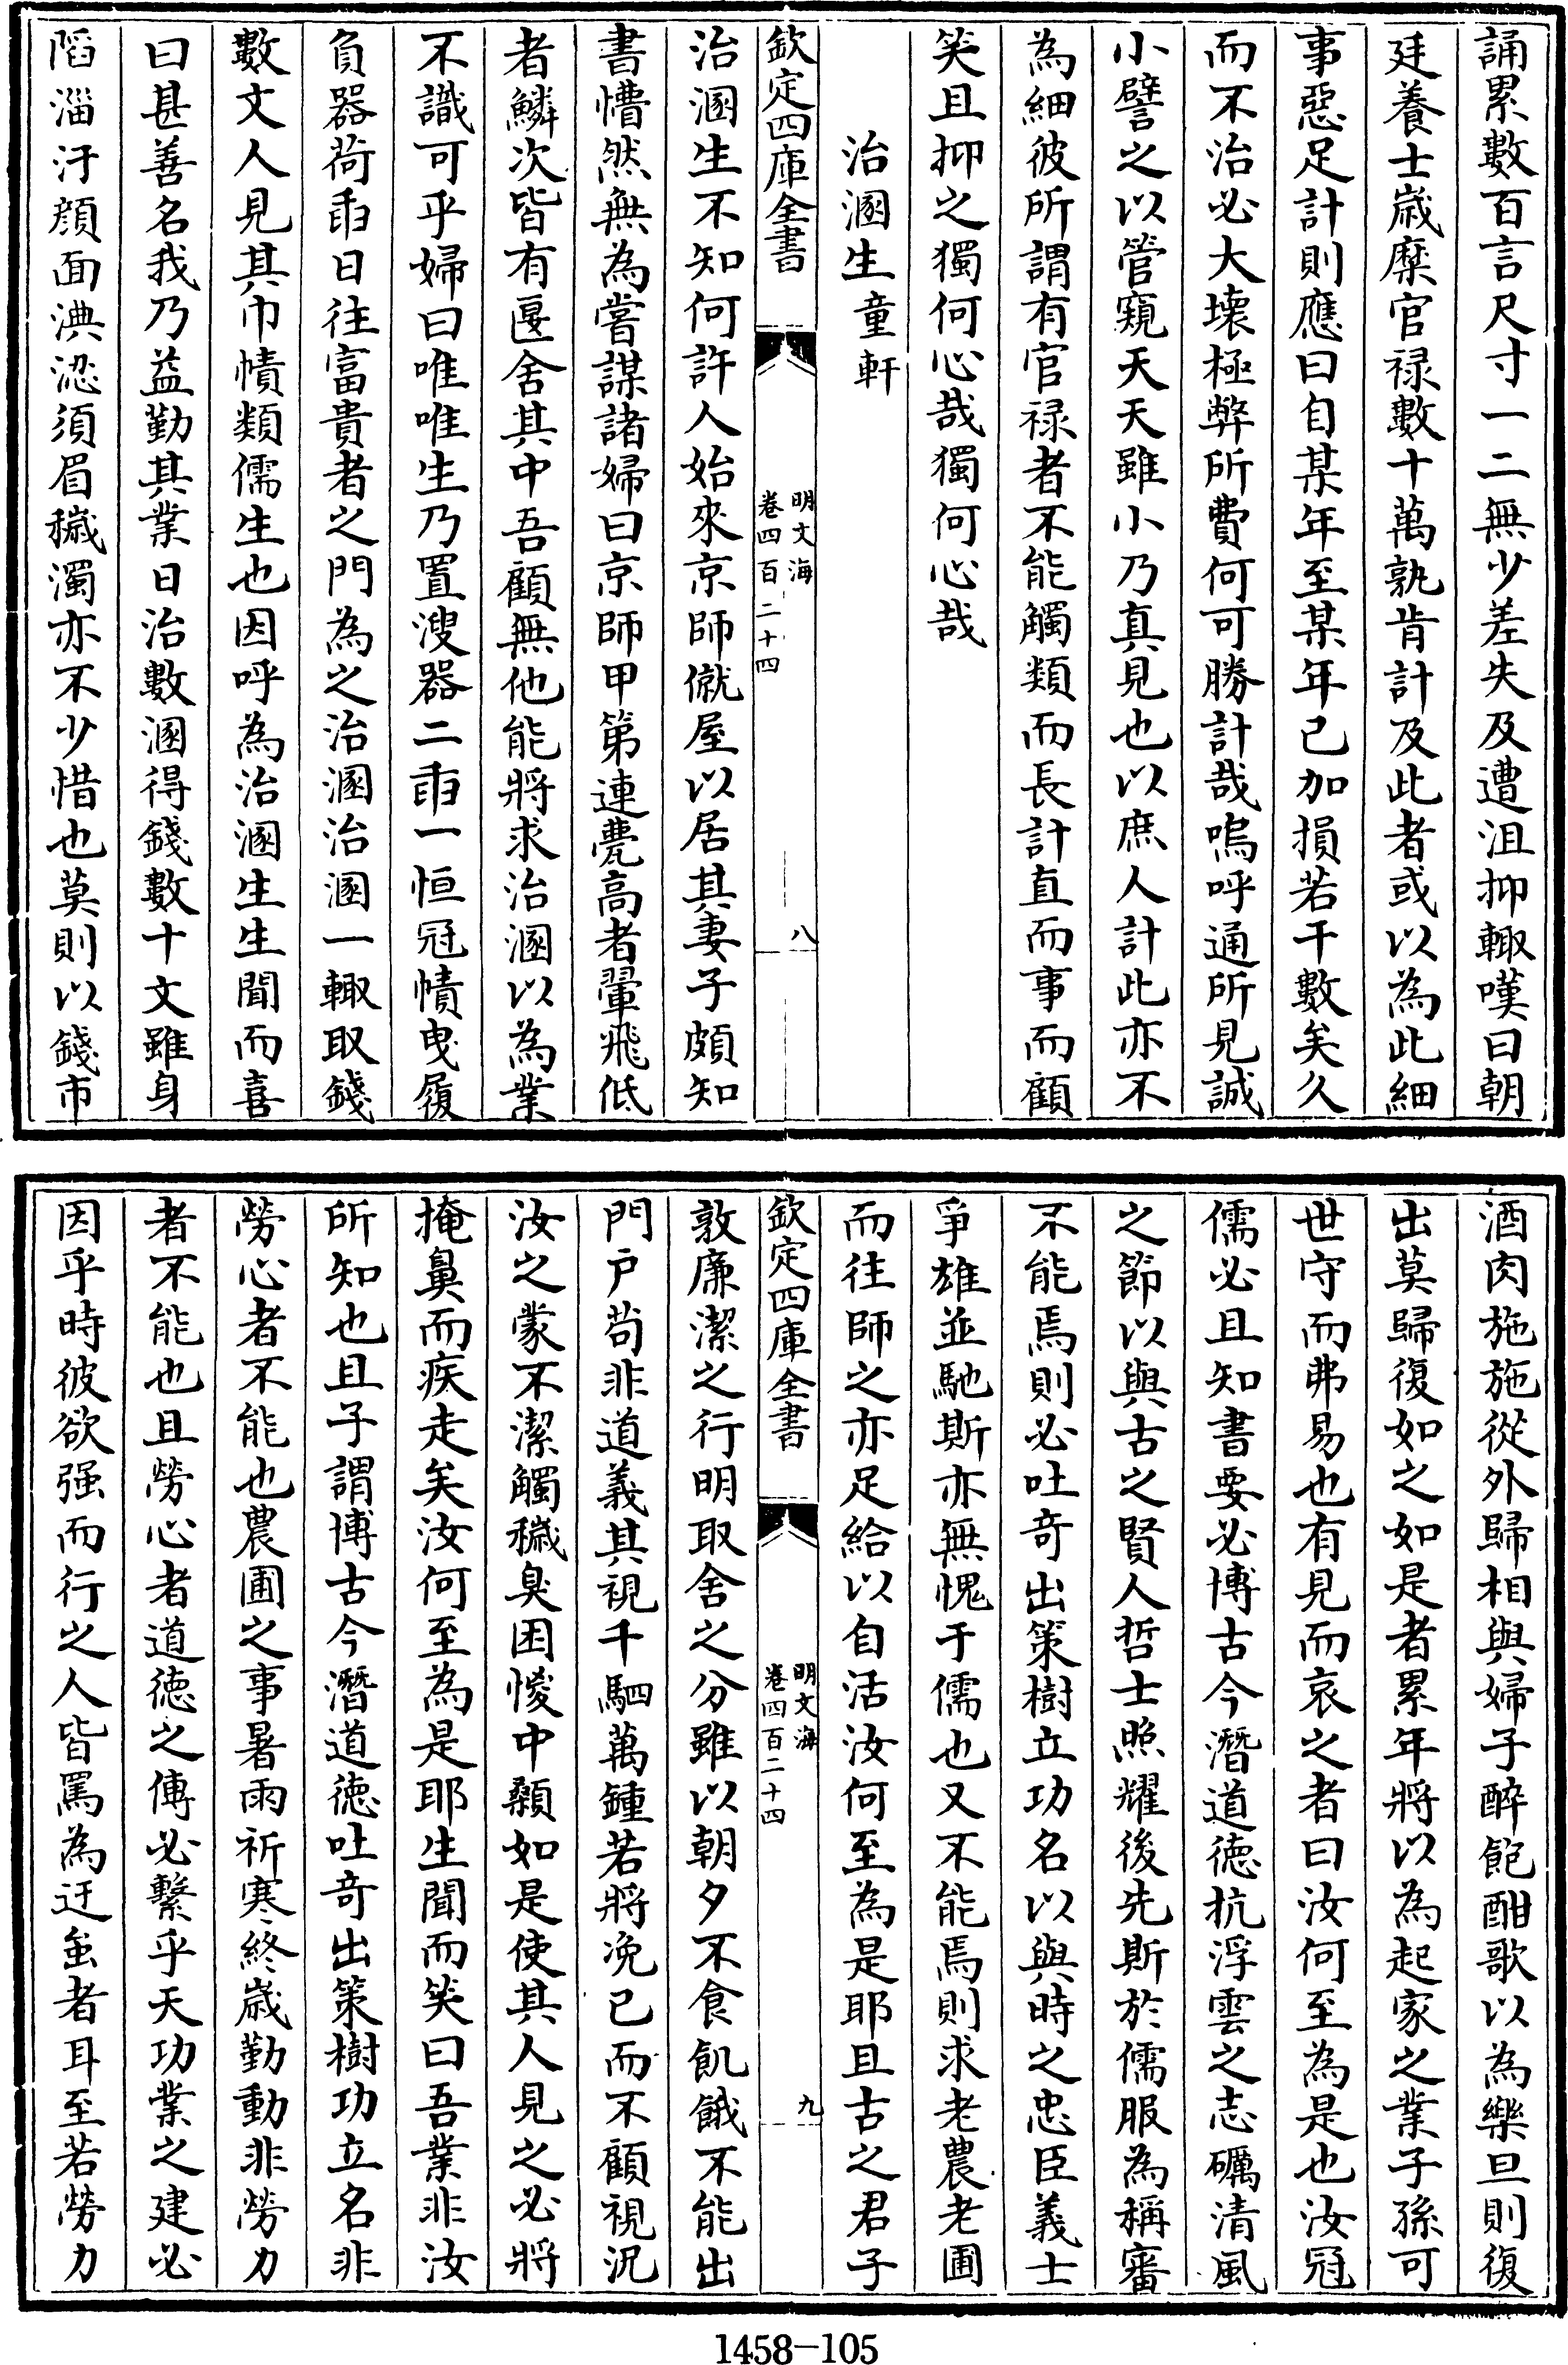 誦累數百言尺寸一二無少差失及遭沮抑輙嘆曰朝
廷養士歲糜官禄數十萬孰肯計及此者或以為此細
事惡足計則應曰自某年至某年已加損若干數矣久
而不治必大壞極弊所費何可勝計哉嗚呼通所見誠
小譬之以管窺天天雖小乃真見也以庶人計此亦不
為細彼所謂有官禄者不能觸類而長計直而事而顧
笑且抑之獨何心哉獨何心哉
治溷生童軒
欽定四庫全書
明文海
卷四百二十四
八
治溷生不知何許人始來京師僦屋以居其妻子頗知
書懵然無為嘗謀諸婦曰京師甲第連甍高者翬飛低
者鱗次皆有匽舍其中吾顧無他能將求治溷以為業
不識可乎婦曰唯唯生乃置溲器二甬一恒冠幘曳履
負器荷甬日往富貴者之門為之治溷治溷一輙取錢
數文人見其巾幘類儒生也因呼為治溷生生聞而喜
曰甚善名我乃益勤其業日治數溷得錢數十文雖身
䧟淄汙顔面淟涊須眉穢濁亦不少惜也莫則以錢市
酒肉施施從外歸相與婦子醉飽酣歌以為樂旦則復
出莫歸復如之如是者累年將以為起家之業子孫可
世守而弗易也有見而哀之者曰汝何至為是也汝冠
儒必且知書要必博古今潛道徳抗浮雲之志礪清風
之節以與古之賢人哲士照耀後先斯於儒服為稱審
不能焉則必吐竒出策樹立功名以與時之忠臣義士
爭雄並馳斯亦無愧于儒也又不能焉則求老農老圃
而往師之亦足給以自活汝何至為是耶且古之君子
欽定四庫全書
明文海
卷四百二十四
九
敦廉潔之行明取舍之分雖以朝夕不食飢餓不能出
門戸茍非道義其視千駟萬鍾若將凂已而不顧視況
汝之蒙不潔觸穢臭困惾中顙如是使其人見之必將
掩鼻而疾走矣汝何至為是耶生聞而笑曰吾業非汝
所知也且子謂博古今潛道徳吐竒出策樹功立名非
勞心者不能也農圃之事暑雨祈寒終歲勤動非勞力
者不能也且勞心者道徳之傳必繫乎天功業之建必
因乎時彼欲强而行之人皆罵為迂䖝者耳至若勞力
1458-105